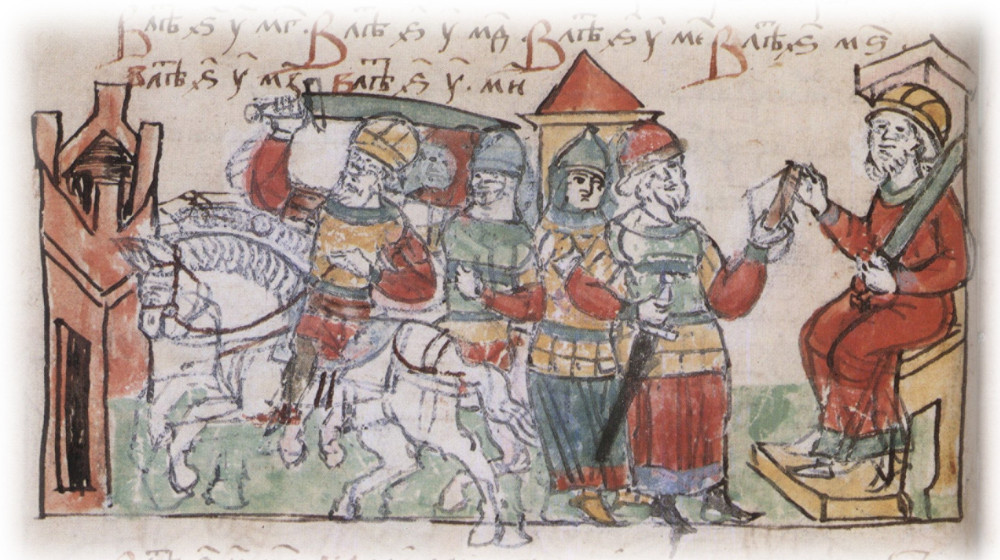 В лⷮѣ ѕ҃ у҃ мг҃. В лⷮѣ ѕ҃ у҃ мд҃. В лⷮѣ ѕ҃ у҃ ме҃ В лⷮѣ ѕ҃ мѕ҃.
В лⷮѣ ѕ҃ у҃ мз҃. В лⷮѣ ѕ҃ у҃. ми҃